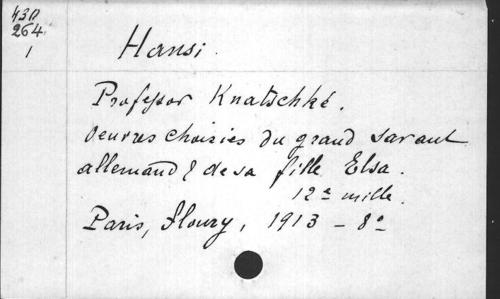 430
264
1
Hansi.
Professor Knatschké.
Oeuvres choisies du grand savant
allemand & de sa fille Elsa.
12e mille.
Paris, Floury, 1913 – 8°